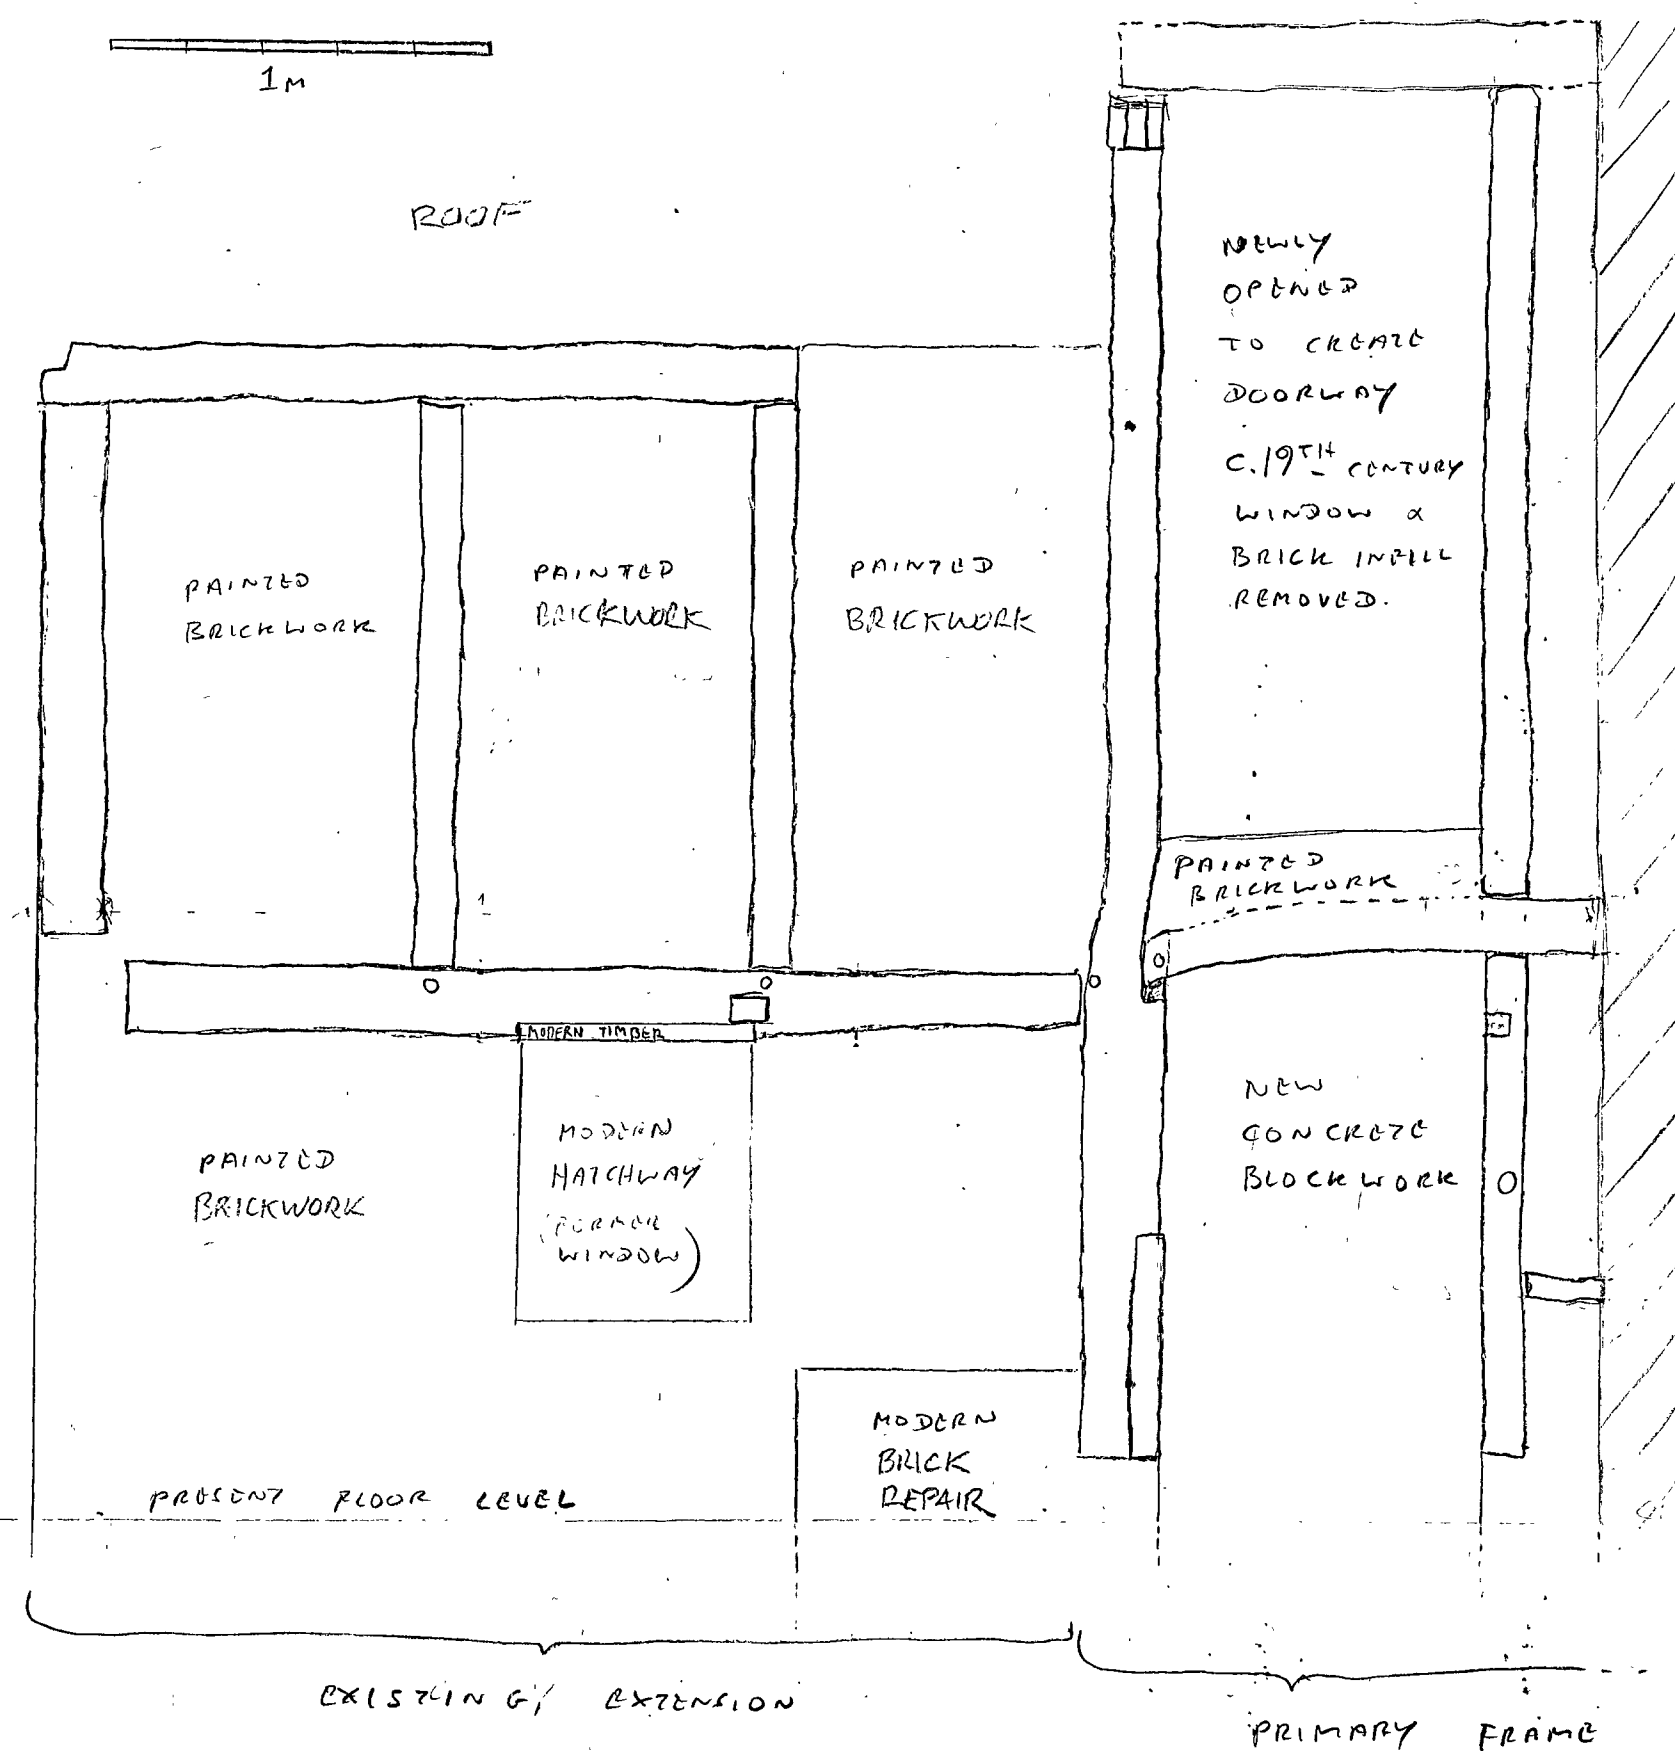 1M
ROOF
NEWLY
OPENED
TO CREATE
DOORWAY
C.19TH CENTURY
WINDOW &
BRICK INFILL
REMOVED.
PAINTED
BRICKWORK
PAINTED
BRICKWORK
PAINTED
BRICKWORK
PAINTED
BRICKWORK
MODERN TIMBER
MODERN
HATCHWAY
(FORMER
WINDOW)
PAINTED
BRICKWORK
NEW
CONCRETE
BLOCKWORK
MODERN
BRICK
REPAIR
PRESENT FLOOR LEVEL
EXISTING EXTENSION
PRIMARY FRAME